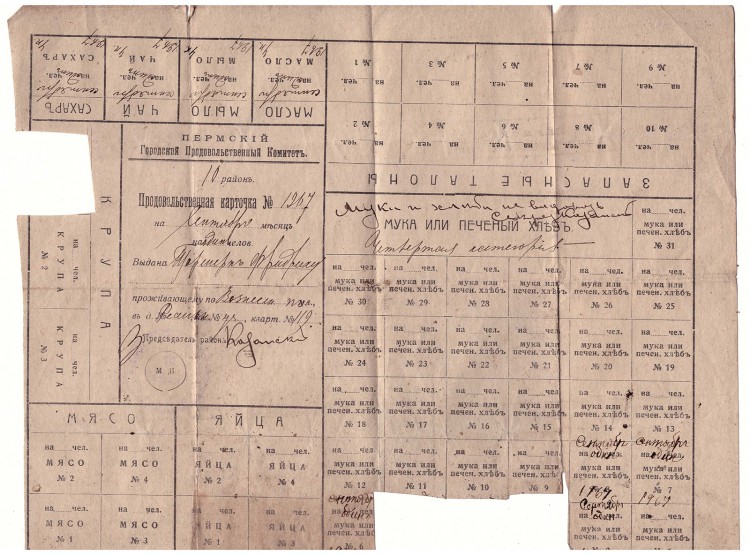 САХАРЪ
ЧАЙ
МЫЛО
МАСЛО
на чел.
сентябрь
1267
на чел.
№ 1
на чел.
№ 3
на чел.
№ 5
на чел.
№ 7
на чел.
№ 9
на чел.
№ 2
на чел.
№ 4
на чел.
№ 6
на чел.
№ 8
на чел.
№ 10
ЗАПАСНЫЕ ТАЛОНЫ
ПЕРМСКІЙ
Городской Продовольственный Комитетъ.
10 районъ.
Продовольственная карточка № 1267
на Сентябрь мѣсяцъ
на один челов.
Выдана
проживающему по Вознесен. ул.
въ д. № кварт. №
Председатель района
М П
КРУПА
на чел.
КРУПА
№ 2
на чел.
КРУПА
№ 3
Мука и
МУКА ИЛИ ПЕЧЕНЫЙ ХЛѢБЪ.
Четвертая категорія
на чел.
мука или
печен. хлѣбъ
№ 31
на чел. на чел. на чел. на чел. на чел. на чел.
мука или мука или мука или мука или мука или мука или
печен. хлѣбъ печен. хлѣбъ печен. хлѣбъ печен. хлѣбъ печен. хлѣбъ печен. хлѣбъ
№ 30 № 29 № 28 № 27 № 26 № 25
на чел. на чел. на чел. на чел. на чел. на чел.
мука или мука или мука или мука или мука или мука или
печен. хлѣбъ печен. хлѣбъ печен. хлѣбъ печен. хлѣбъ печен. хлѣбъ печен. хлѣбъ
№ 24 № 23 № 22 № 21 № 20 № 19
на чел. на чел. на чел. на чел. на чел. на чел.
мука или мука или мука или мука или мука или мука или
печен. хлѣбъ печен. хлѣбъ печен. хлѣбъ печен. хлѣбъ печен. хлѣбъ печен. хлѣбъ
№ 18 № 17 № 16 № 15 № 14 № 13
МЯСО ЯЙЦА
на чел. на чел. на чел. на чел.
МЯСО МЯСО ЯЙЦА ЯЙЦА
№ 2 № 4 № 2 № 4
на чел. на чел. на чел. на чел.
МЯСО МЯСО ЯЙЦА ЯЙЦА
№ 1 № 3 № 1 № 3
на чел. на чел. на чел. на чел. Сентябрь сентябрь
мука или мука или мука или мука или мука или мука или
печен. хлѣбъ печен. хлѣбъ печен. хлѣбъ печен. хлѣбъ печен. хлѣбъ печен. хлѣбъ
№ 12 № 11 № 10 № 9 № 7
1267 1267
Сентябрь
один
мука или мука или мука или
печен. хлѣбъ печен. хлѣбъ печен. хлѣбъ